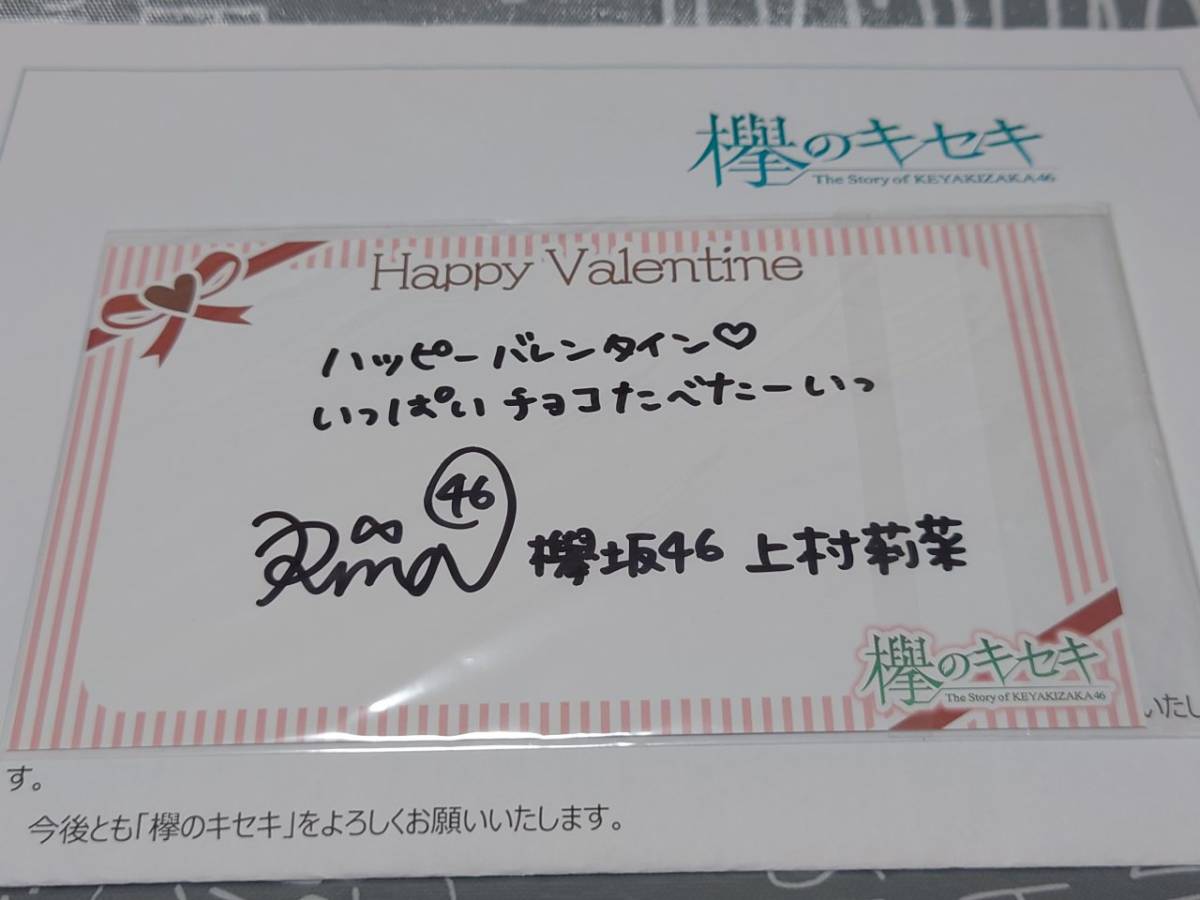 欅のキセキ
The Story of KEYAKIZAKA46
Happy Valentine
ハッピーバレンタイン♡
いっぱいチョコたべたーいっ
Rina 46 欅坂46 上村莉菜
欅のキセキ
The Story of KEYAKIZAKA46
いたし
す。
今後とも「欅のキセキ」をよろしくお願いいたします。